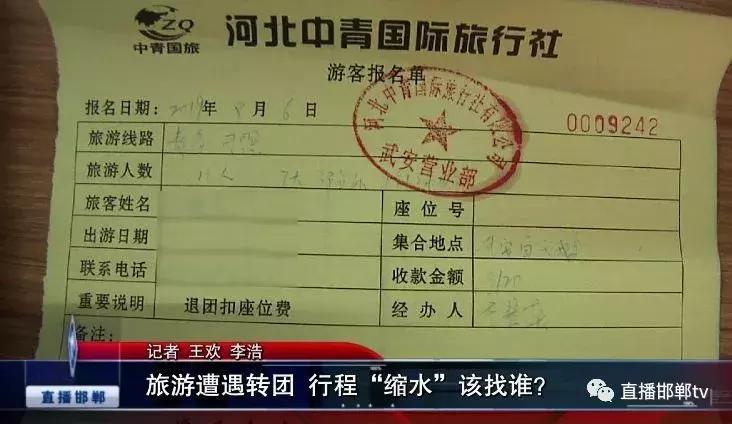 ZQ
中青国旅
河北中青国际旅行社
游客报名单
报名日期：2019年8月6日
河北中青国际旅行社有限公司
武安营业部
0009242
旅游线路
旅游人数
旅客姓名 座位号
出游日期 集合地点
联系电话 收款金额
重要说明 退团扣座位费 经办人
备注：
记者 王欢 李浩
旅游遭遇转团 行程“缩水”该找谁？
直播邯郸
直播邯郸tv